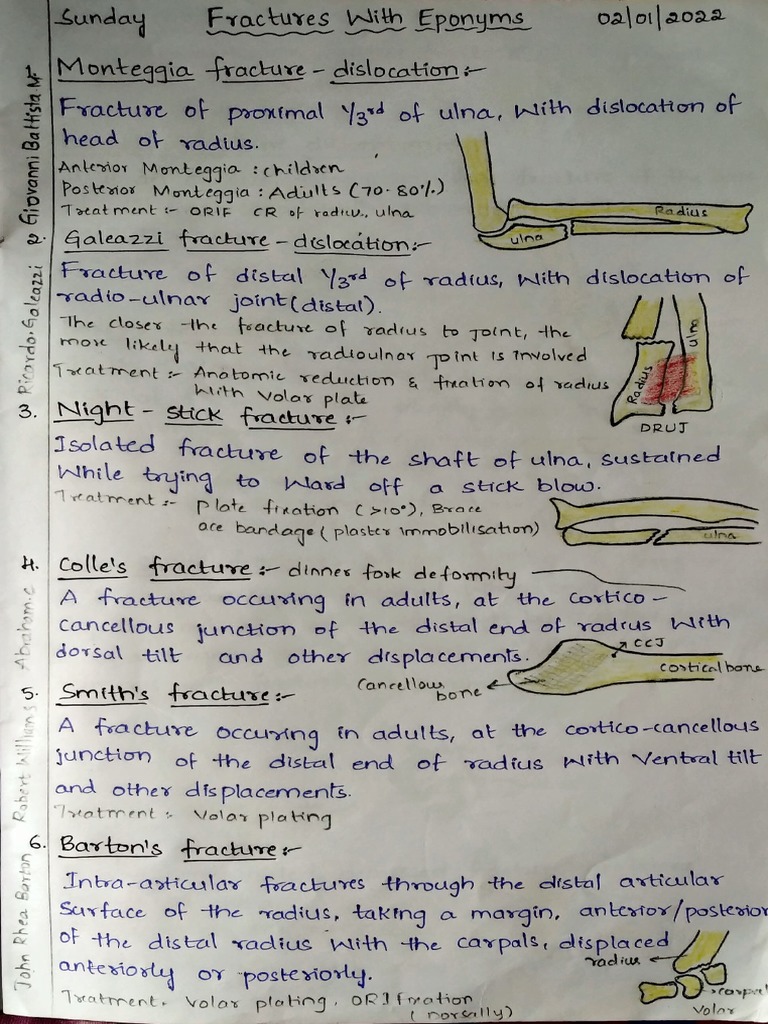 Sunday Fractures With Eponyms 02/01/2022
Monteggia fracture - dislocation:-
Giovanni Battista M.
Fracture of proximal 1/3rd of ulna, With dislocation of
head of radius.
Anterior Monteggia : children
Posterior Monteggia : Adults (70-80%)
Treatment :- ORIF CR of radius, ulna
Radius
ulna
2. Galeazzi fracture - dislocation:-
Ricardo Galeazzi
Fracture of distal 1/3rd of radius, With dislocation of
radio-ulnar joint (distal).
The closer the fracture of radius to joint, the
more likely that the radioulnar joint is involved
Treatment :- Anatomic reduction & fixation of radius
With volar plate
Radius
ulna
DRUJ
3. Night - stick fracture :-
Isolated fracture of the shaft of ulna, sustained
While trying to Ward off a stick blow.
Treatment :- plate fixation (>10°), Brace
ace bandage (plaster immobilisation)
ulna
4. Colle's fracture :- dinner fork deformity
Abraham.c
A fracture occuring in adults, at the cortico -
cancellous junction of the distal end of radius With
dorsal tilt and other displacements.
CCJ
cortical bone
Cancellous
bone
5. Smith's fracture:-
Robert Williams
A fracture occuring in adults, at the cortico-cancellous
junction of the distal end of radius With Ventral tilt
and other displacements.
Treatment : Volar plating
6. Barton's fracture:-
John Rhea Barton
Intra-articular fractures through the distal articular
Surface of the radius, taking a margin, anterior/posterior
of the distal radius With the carpals, displaced
anteriorly or posteriorly.
Treatment. Volar plating, ORI fixation
(dorsally)
radius
carpal
Volar